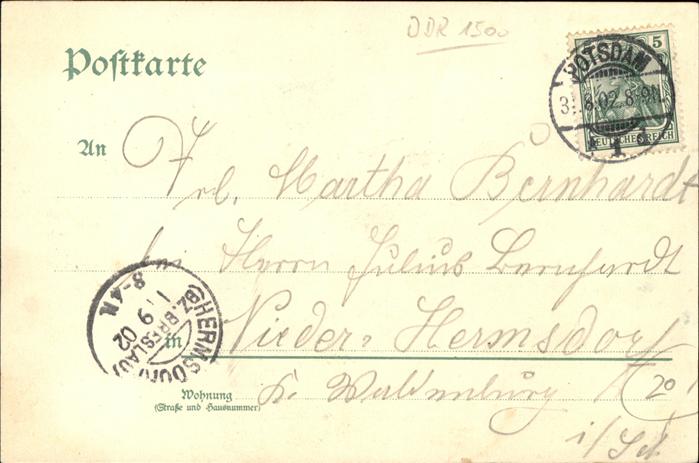 DDR 1500
Postkarte
5
DEUTSCHES REICH
POTSDAM
31.8.02.8-9N.
1
An
Frl. Martha Bernhardt
bei Herrn Julius Bernhardt
in Nieder-Hermsdorf
Wohnung
(Straße und Hausnummer)
b. Waldenburg
20
i/Schl
HERMSDORF
(BZ. BRESLAU)
1.9.02
8-4N.